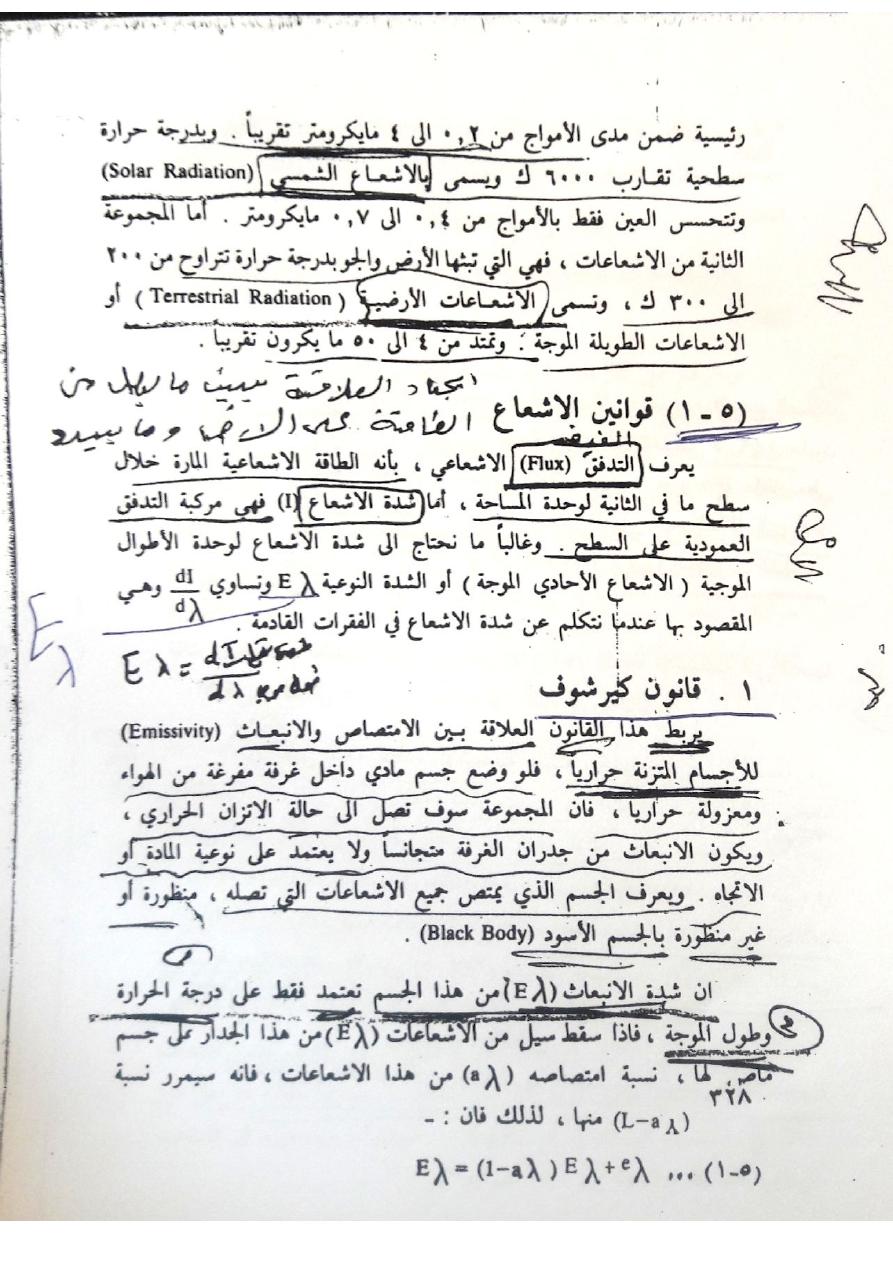 رئيسية ضمن مدى الأمواج من ٠,٢ الى ٤ مايكرومتر تقريباً . وبدرجة حرارة
سطحية تقارب ٦٠٠٠ ك ويسمى بالاشعاع الشمسي (Solar Radiation)
وتتحسس العين فقط بالأمواج من ٠,٤ الى ٠,٧ مايكرومتر . أما المجموعة
الثانية من الاشعاعات ، فهي التي تبثها الأرض والجو بدرجة حرارة تتراوح من ٢٠٠
الى ٣٠٠ ك ، وتسمى الاشعاعات الأرضية ( Terrestrial Radiation ) أو
الاشعاعات الطويلة الموجة : وتمتد من ٤ الى ٥٠ ما يكرون تقريبا .
العلاقة
(٥ - ١) قوانين الاشعاع
يعرف التدفق (Flux) الاشعاعي ، بأنه الطاقة الاشعاعية المارة خلال
سطح ما في الثانية لوحدة المساحة ، أما شدة الاشعاع (I) فهي مركبة التدفق
العمودية على السطح . وغالباً ما نحتاج الى شدة الاشعاع لوحدة الأطوال
الموجية ( الاشعاع الأحادي الموجة ) أو الشدة النوعية E λ وتساوي dI/dλ وهي
المقصود بها عندما نتكلم عن شدة الاشعاع في الفقرات القادمة .
E λ
E λ = dI/dλ
١ . قانون كيرشوف
يربط هذا القانون العلاقة بين الامتصاص والانبعاث (Emissivity)
للأجسام المتزنة حرارياً ، فلو وضع جسم مادي داخل غرفة مفرغة من الهواء
ومعزولة حرارياً ، فان المجموعة سوف تصل الى حالة الاتزان الحراري ،
ويكون الانبعاث من جدران الغرفة متجانساً ولا يعتمد على نوعية المادة أو
الاتجاه . ويعرف الجسم الذي يمتص جميع الاشعاعات التي تصله ، منظورة أو
غير منظورة بالجسم الأسود (Black Body) .
ان شدة الانبعاث (E λ) من هذا الجسم تعتمد فقط على درجة الحرارة
وطول الموجة ، فاذا سقط سيل من الاشعاعات (E λ) من هذا الجدار على جسم
ماص لها ، نسبة امتصاصه (a λ) من هذا الاشعاعات ، فانه سيمرر نسبة
٣٢٨
(L-a λ) منها ، لذلك فان : -
E λ = (1-a λ) E λ + e λ ... (١-٥)